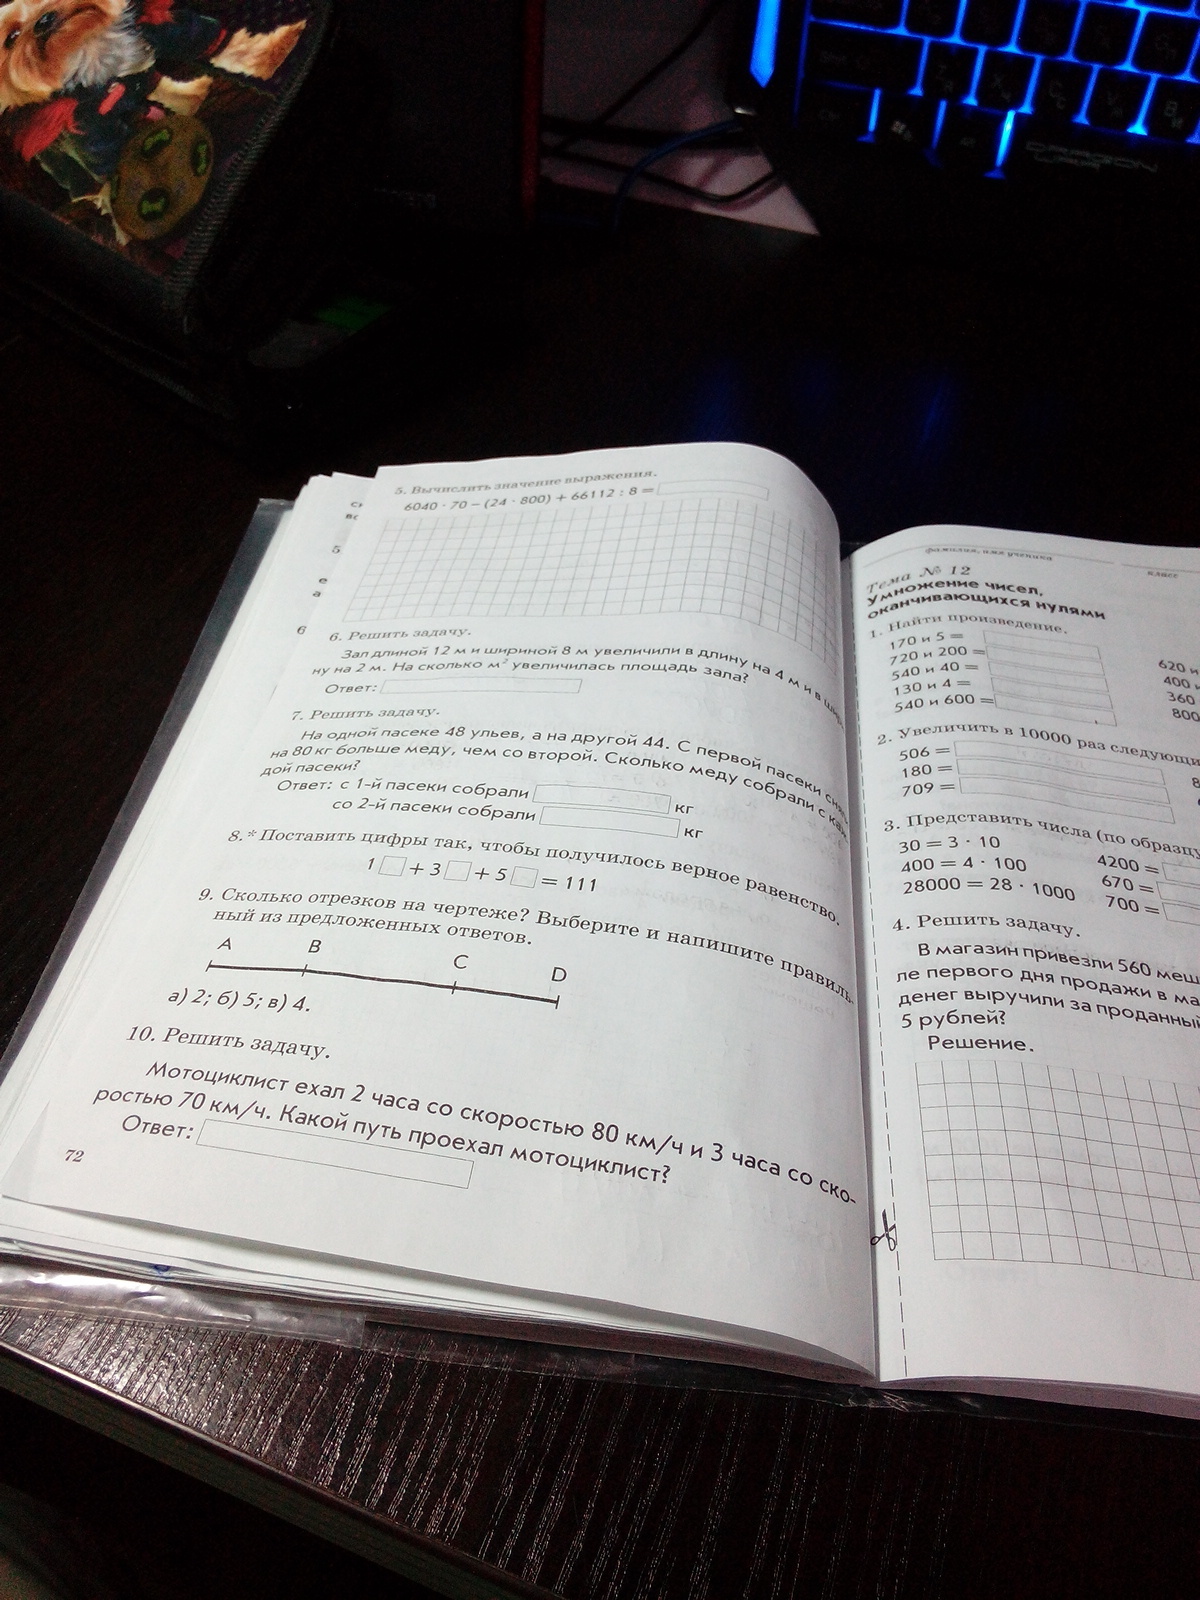 5. Вычислить значение выражения.
6040 · 70 – (24 · 800) + 66112 : 8 =
6. Решить задачу.
Зал длиной 12 м и шириной 8 м увеличили в длину на 4 м и в шири
ну на 2 м. На сколько м² увеличилась площадь зала?
Ответ:
7. Решить задачу.
На одной пасеке 48 ульев, а на другой 44. С первой пасеки
на 80 кг больше меду, чем со второй. Сколько меду собрали с
дой пасеки?
Ответ: с 1-й пасеки собрали кг
со 2-й пасеки собрали кг
8.* Поставить цифры так, чтобы получилось верное равенство.
1□ + 3□ + 5□ = 111
9. Сколько отрезков на чертеже? Выберите и напишите правиль-
ный из предложенных ответов.
A B C D
а) 2; б) 5; в) 4.
10. Решить задачу.
Мотоциклист ехал 2 часа со скоростью 80 км/ч и 3 часа со ско-
ростью 70 км/ч. Какой путь проехал мотоциклист?
Ответ:
72
5
е
а
6
фамилия, имя ученика
класс
Тема № 12
Умножение чисел,
оканчивающихся нулями
1. Найти произведение.
170 и 5 =
720 и 200 =
540 и 40 = 620 и
130 и 4 = 400 и
540 и 600 = 360
800
2. Увеличить в 10000 раз следующи
506 =
180 = 8
709 =
3. Представить числа (по образцу
30 = 3 · 10
400 = 4 · 100 4200 =
28000 = 28 · 1000 670 =
700 =
4. Решить задачу.
В магазин привезли 560 меш
ле первого дня продажи в ма
денег выручили за проданный
5 рублей?
Решение.